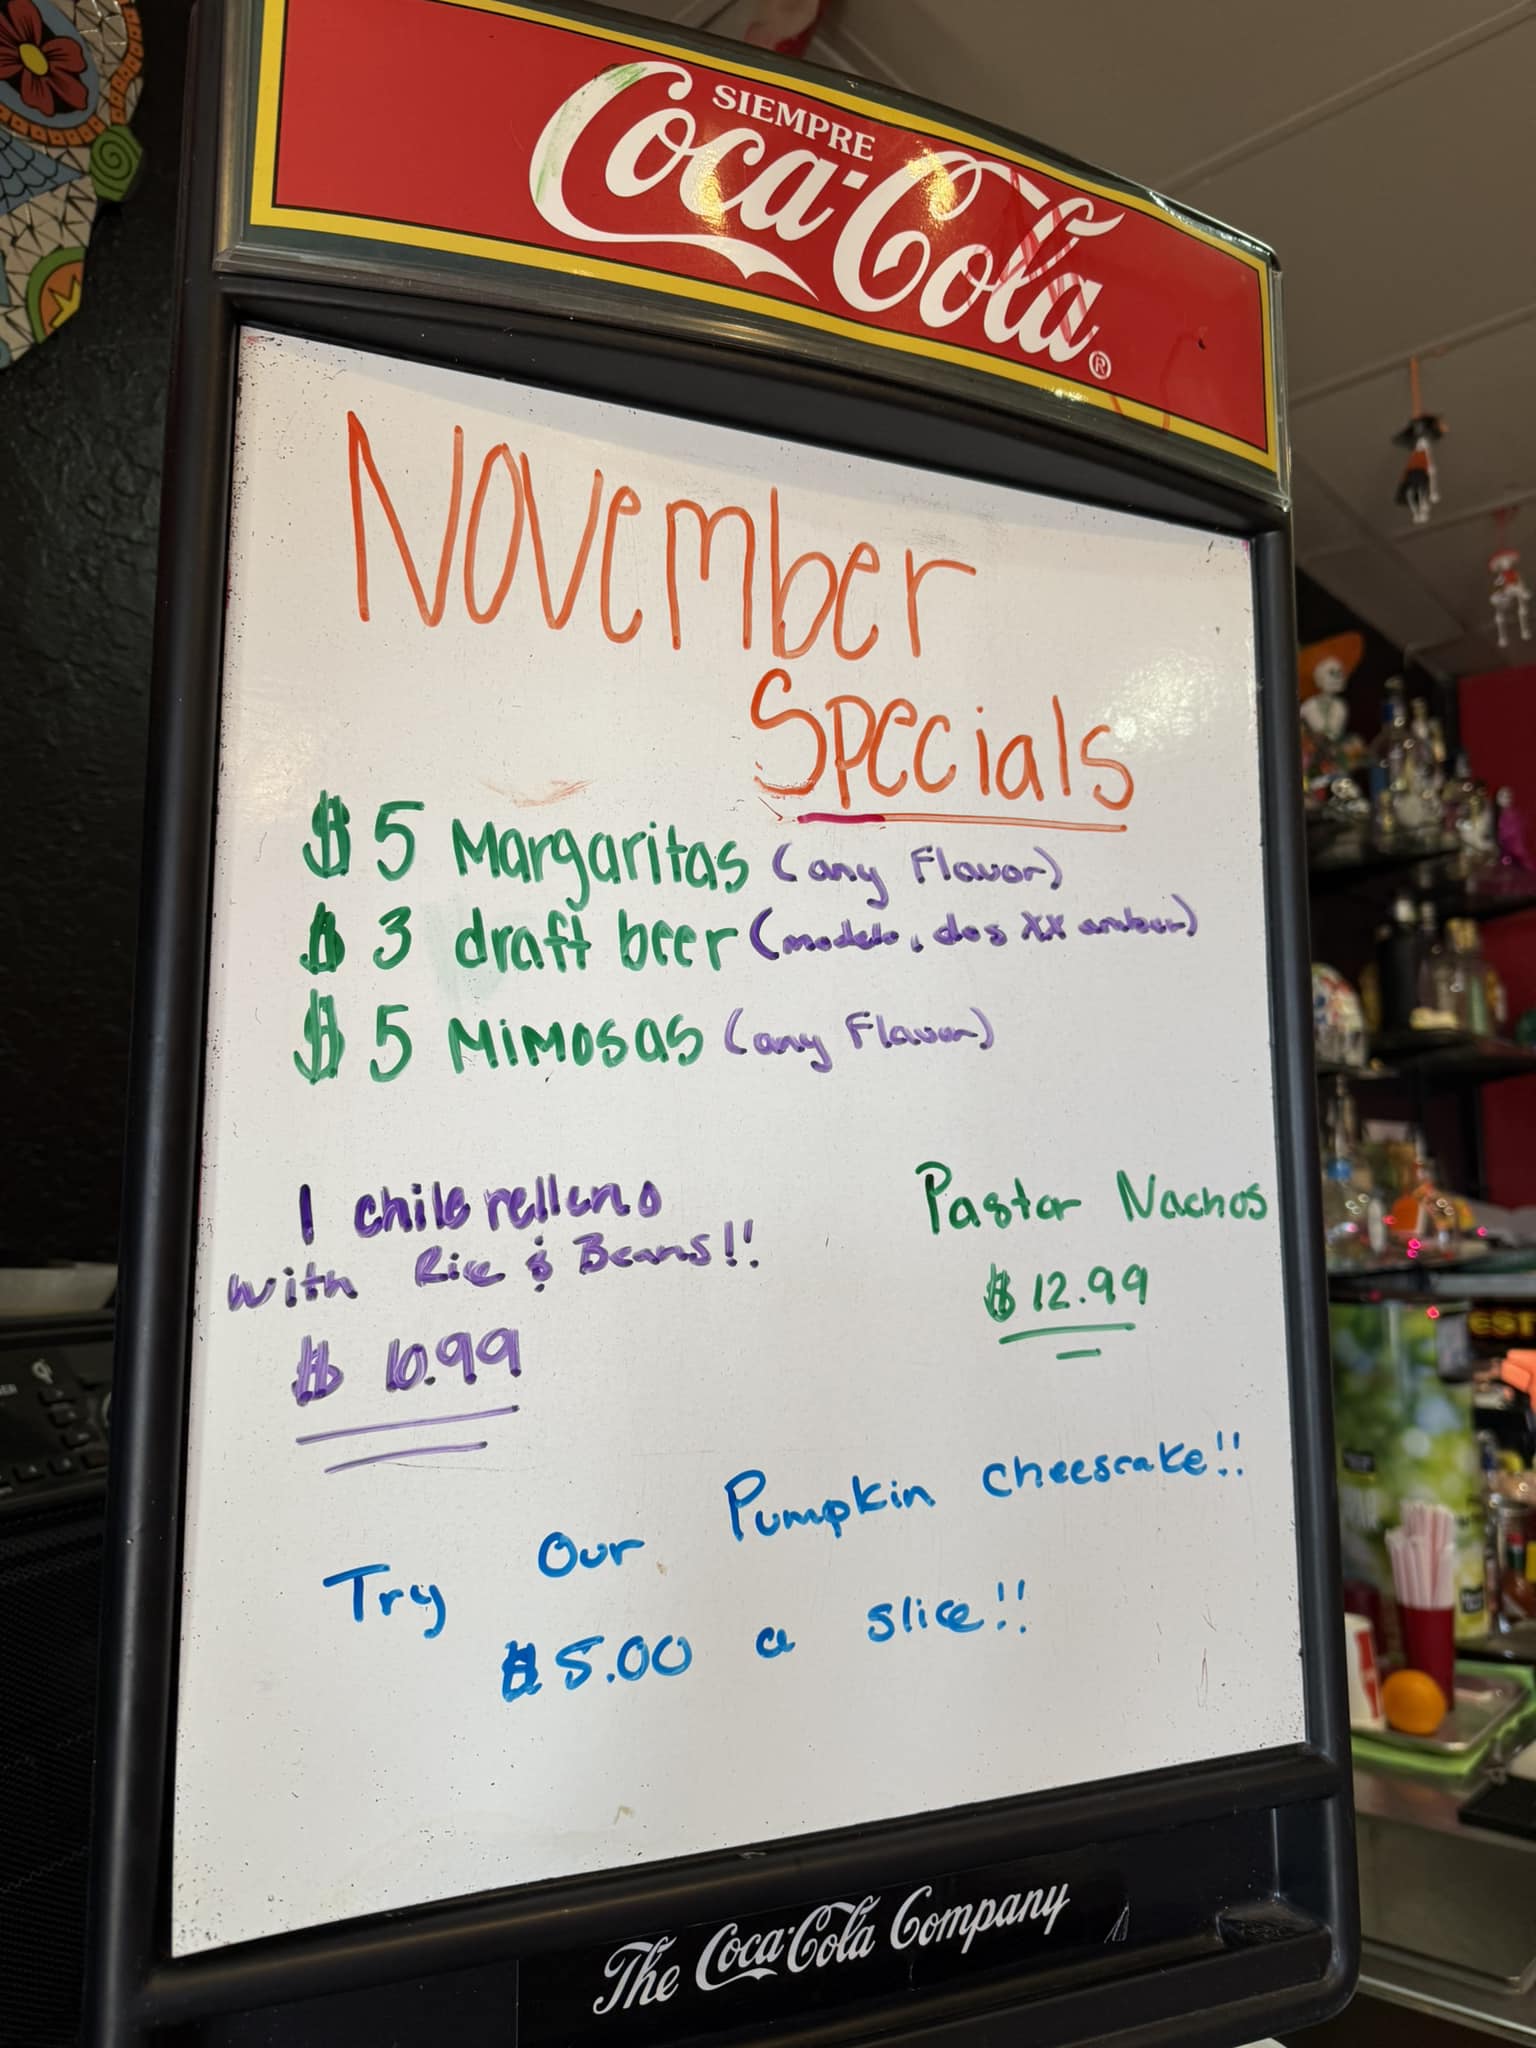 SIEMPRE
Coca-Cola®
November
Specials
$5 Margaritas (any Flavor)
$3 draft beer (modelo, dos XX amber)
$5 Mimosas (any Flavor)
1 chile relleno
with Rice & Beans!!
$10.99
Pastor Nachos
$12.99
Try Our Pumpkin Cheesecake!!
$5.00 a slice!!
The Coca-Cola Company